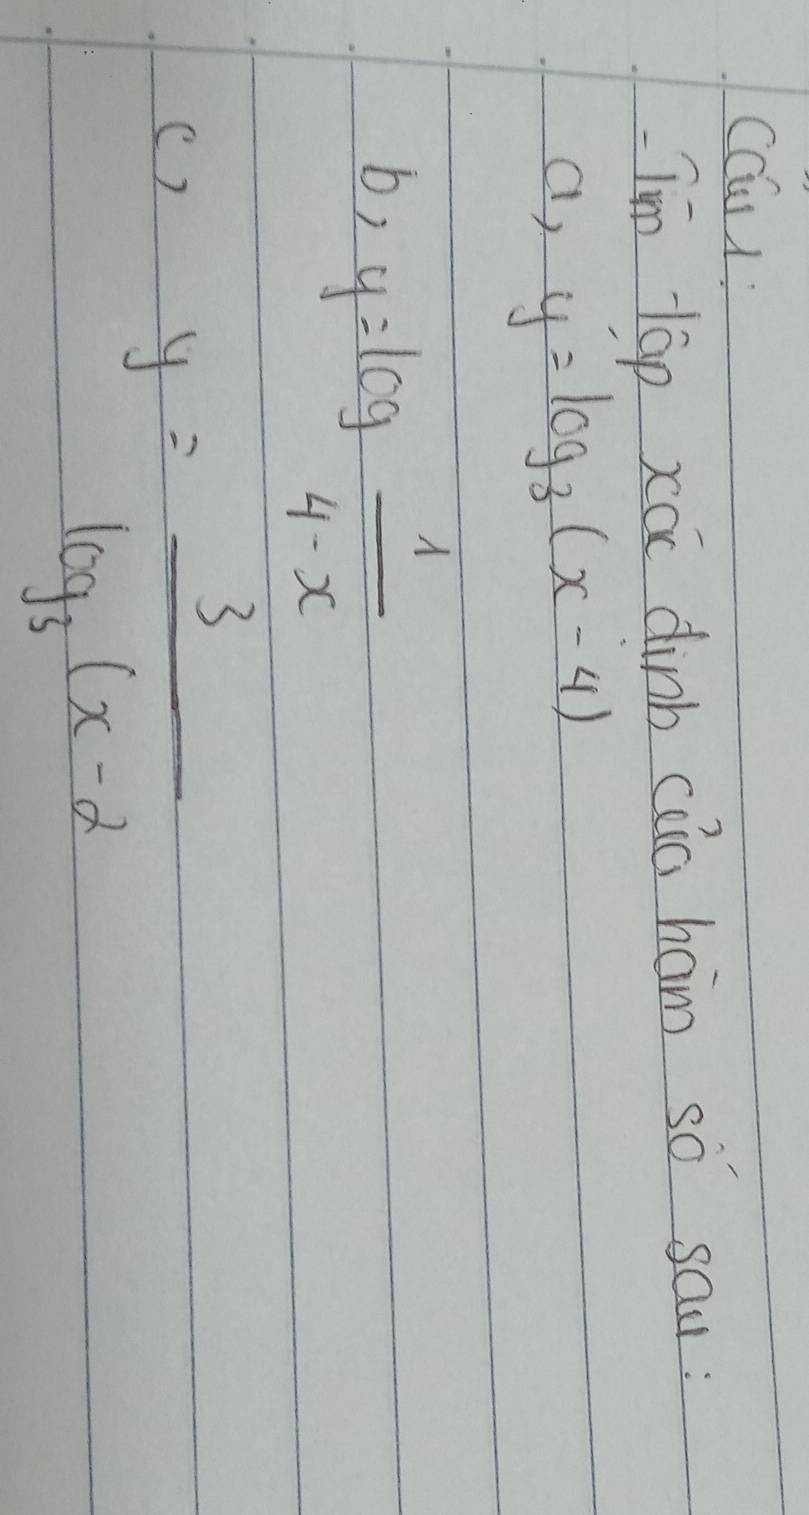 Câu 1:
- Tìm tập xác định của hàm số sau:
a, y = log₃ (x - 4)
b, y = log 1
4 - x
c, y = 3
log₃ (x - 2